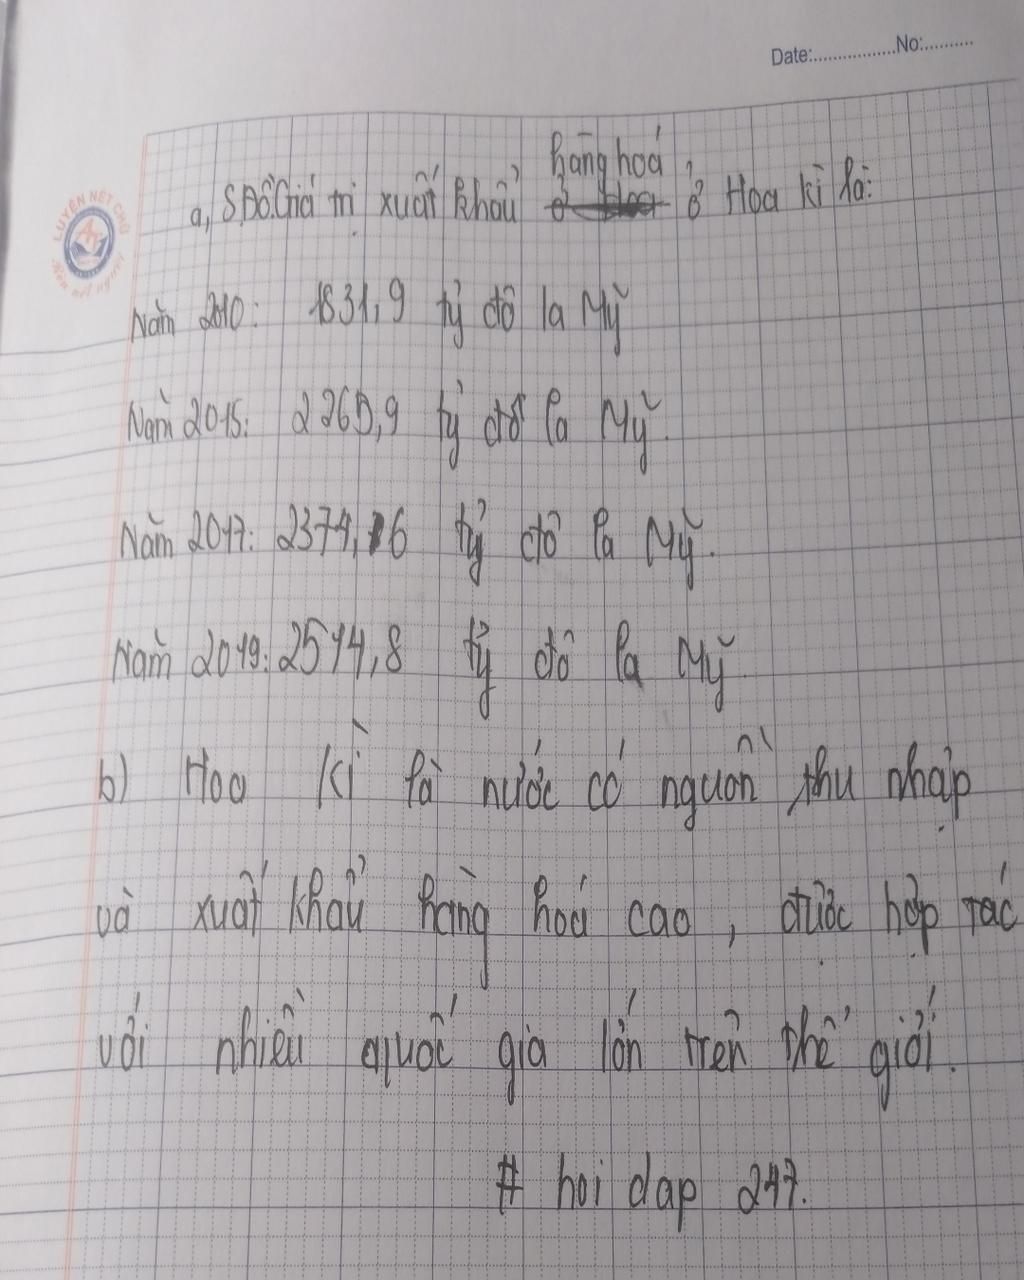 Date:..................No:..........
LUYỆN NÉT CHỮ
Rèn nết người
a, SĐồ Giá trị xuất khẩu hàng hoá ở Hoa kì là:
Năm 2010: 1831,9 tỷ đô la Mỹ
Năm 2015: 2265,9 tỷ đô la Mỹ.
Năm 2017: 2374,6 tỷ đô la Mỹ.
Năm 2019: 2514,8 tỷ đô la Mỹ.
b) Hoa Kì là nước có nguồn thu nhập
và xuất khẩu hàng hoá cao, được hợp tác
với nhiều quốc gia lớn trên thế giới.
# hoi dap 247.